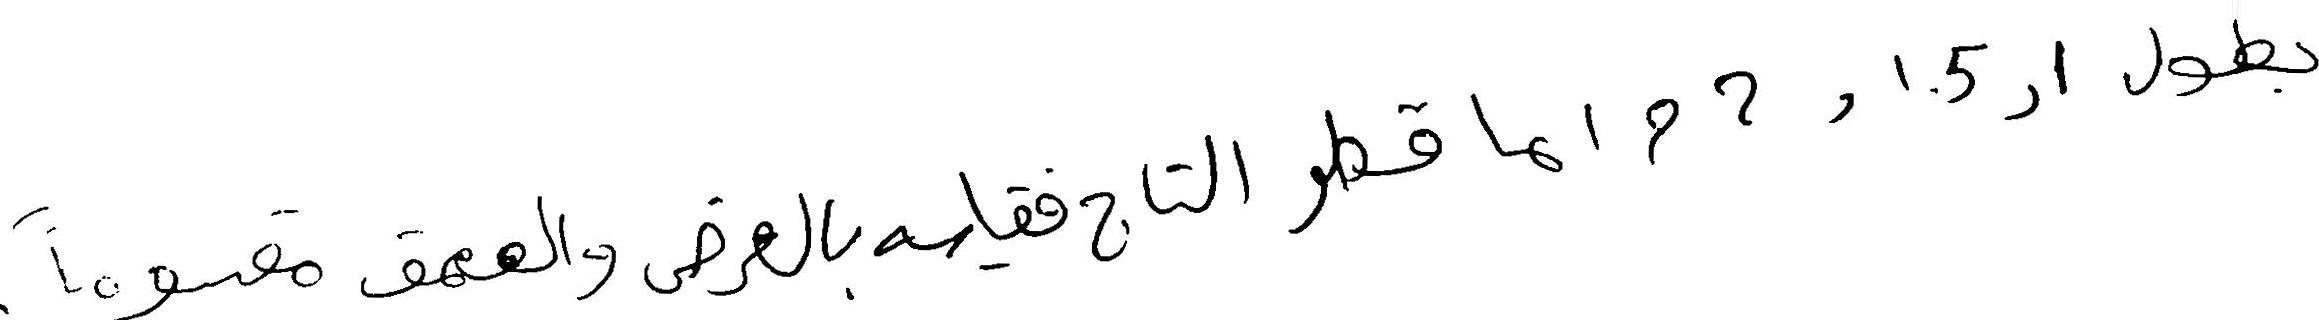 بطول 1,5.1 , 2 م اما قطر التاج فقياسه بالعرض والعمق مقسوماً